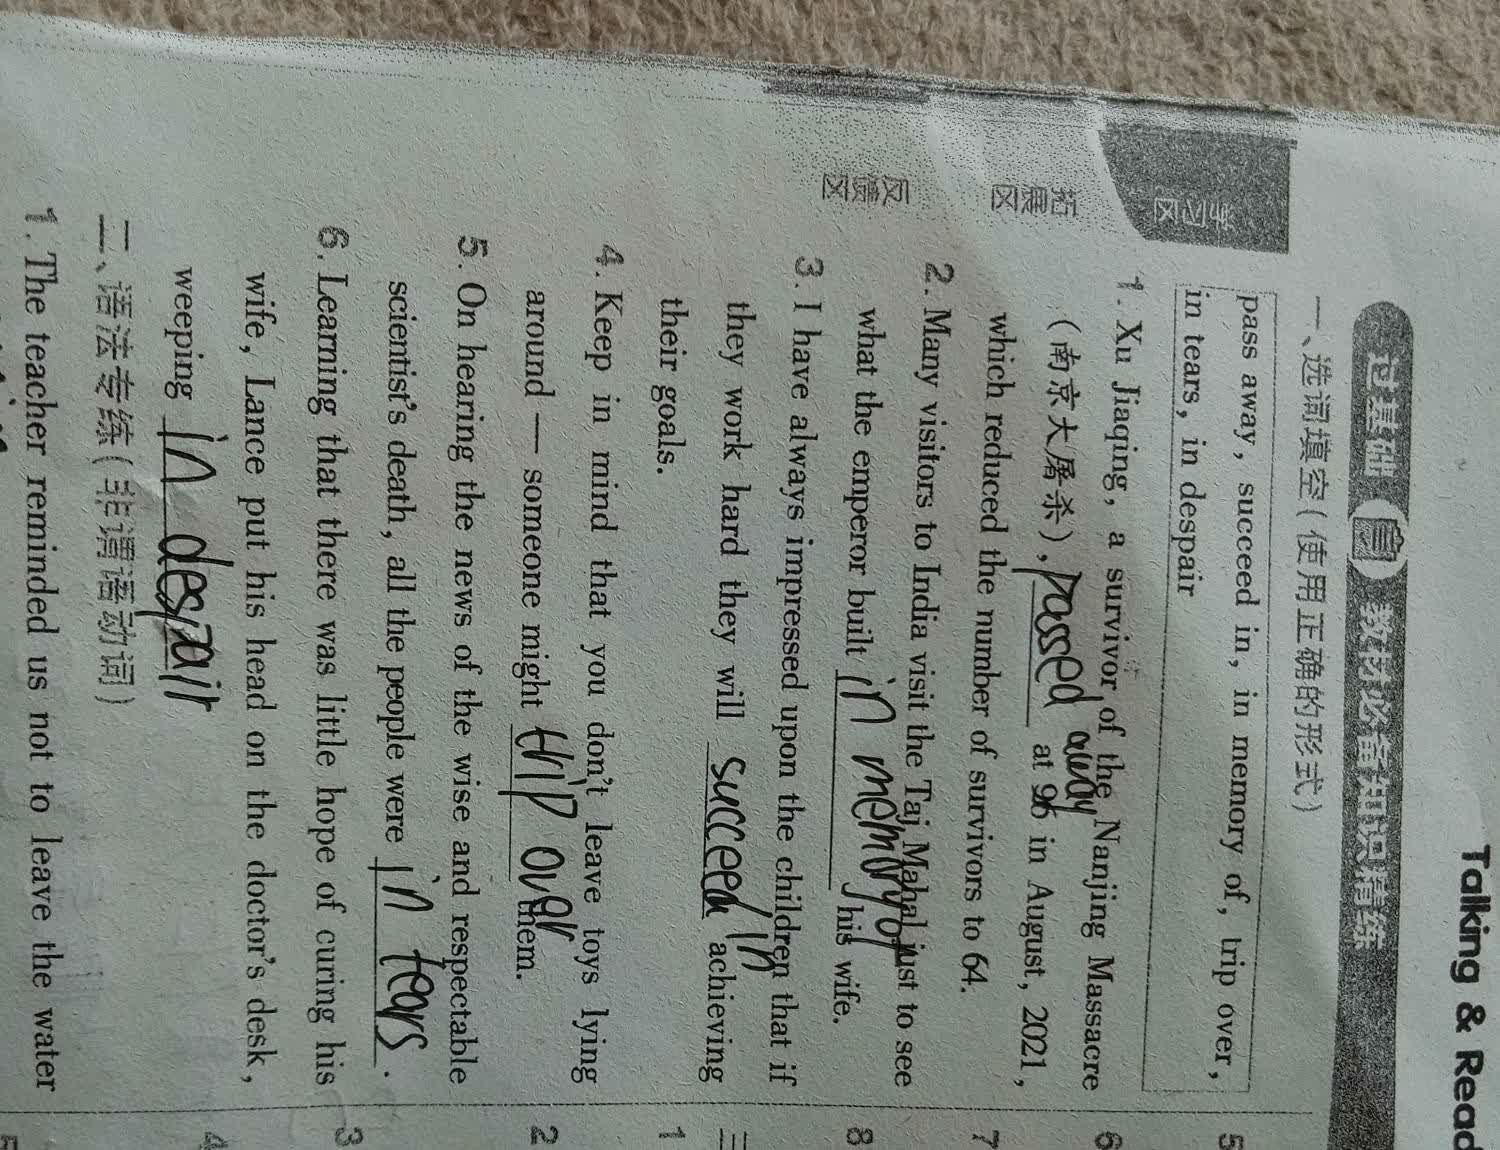 Talking & Read
过基础 教材必备知识精练
一、选词填空(使用正确的形式)
pass away, succeed in, in memory of, trip over,
in tears, in despair
学习区
拓展区
反馈区
1. Xu Jiaqing, a survivor of the Nanjing Massacre
(南京大屠杀), passed away at 96 in August, 2021,
which reduced the number of survivors to 64.
2. Many visitors to India visit the Taj Mahal just to see
what the emperor built in memory of his wife.
3. I have always impressed upon the children that if
they work hard they will succeed in achieving
their goals.
4. Keep in mind that you don't leave toys lying
around — someone might trip over them.
5. On hearing the news of the wise and respectable
scientist's death, all the people were in tears.
6. Learning that there was little hope of curing his
wife, Lance put his head on the doctor's desk,
weeping in despair
二、语法专练(非谓语动词)
1. The teacher reminded us not to leave the water
5
6
7
8
三
1
2
3
4
5